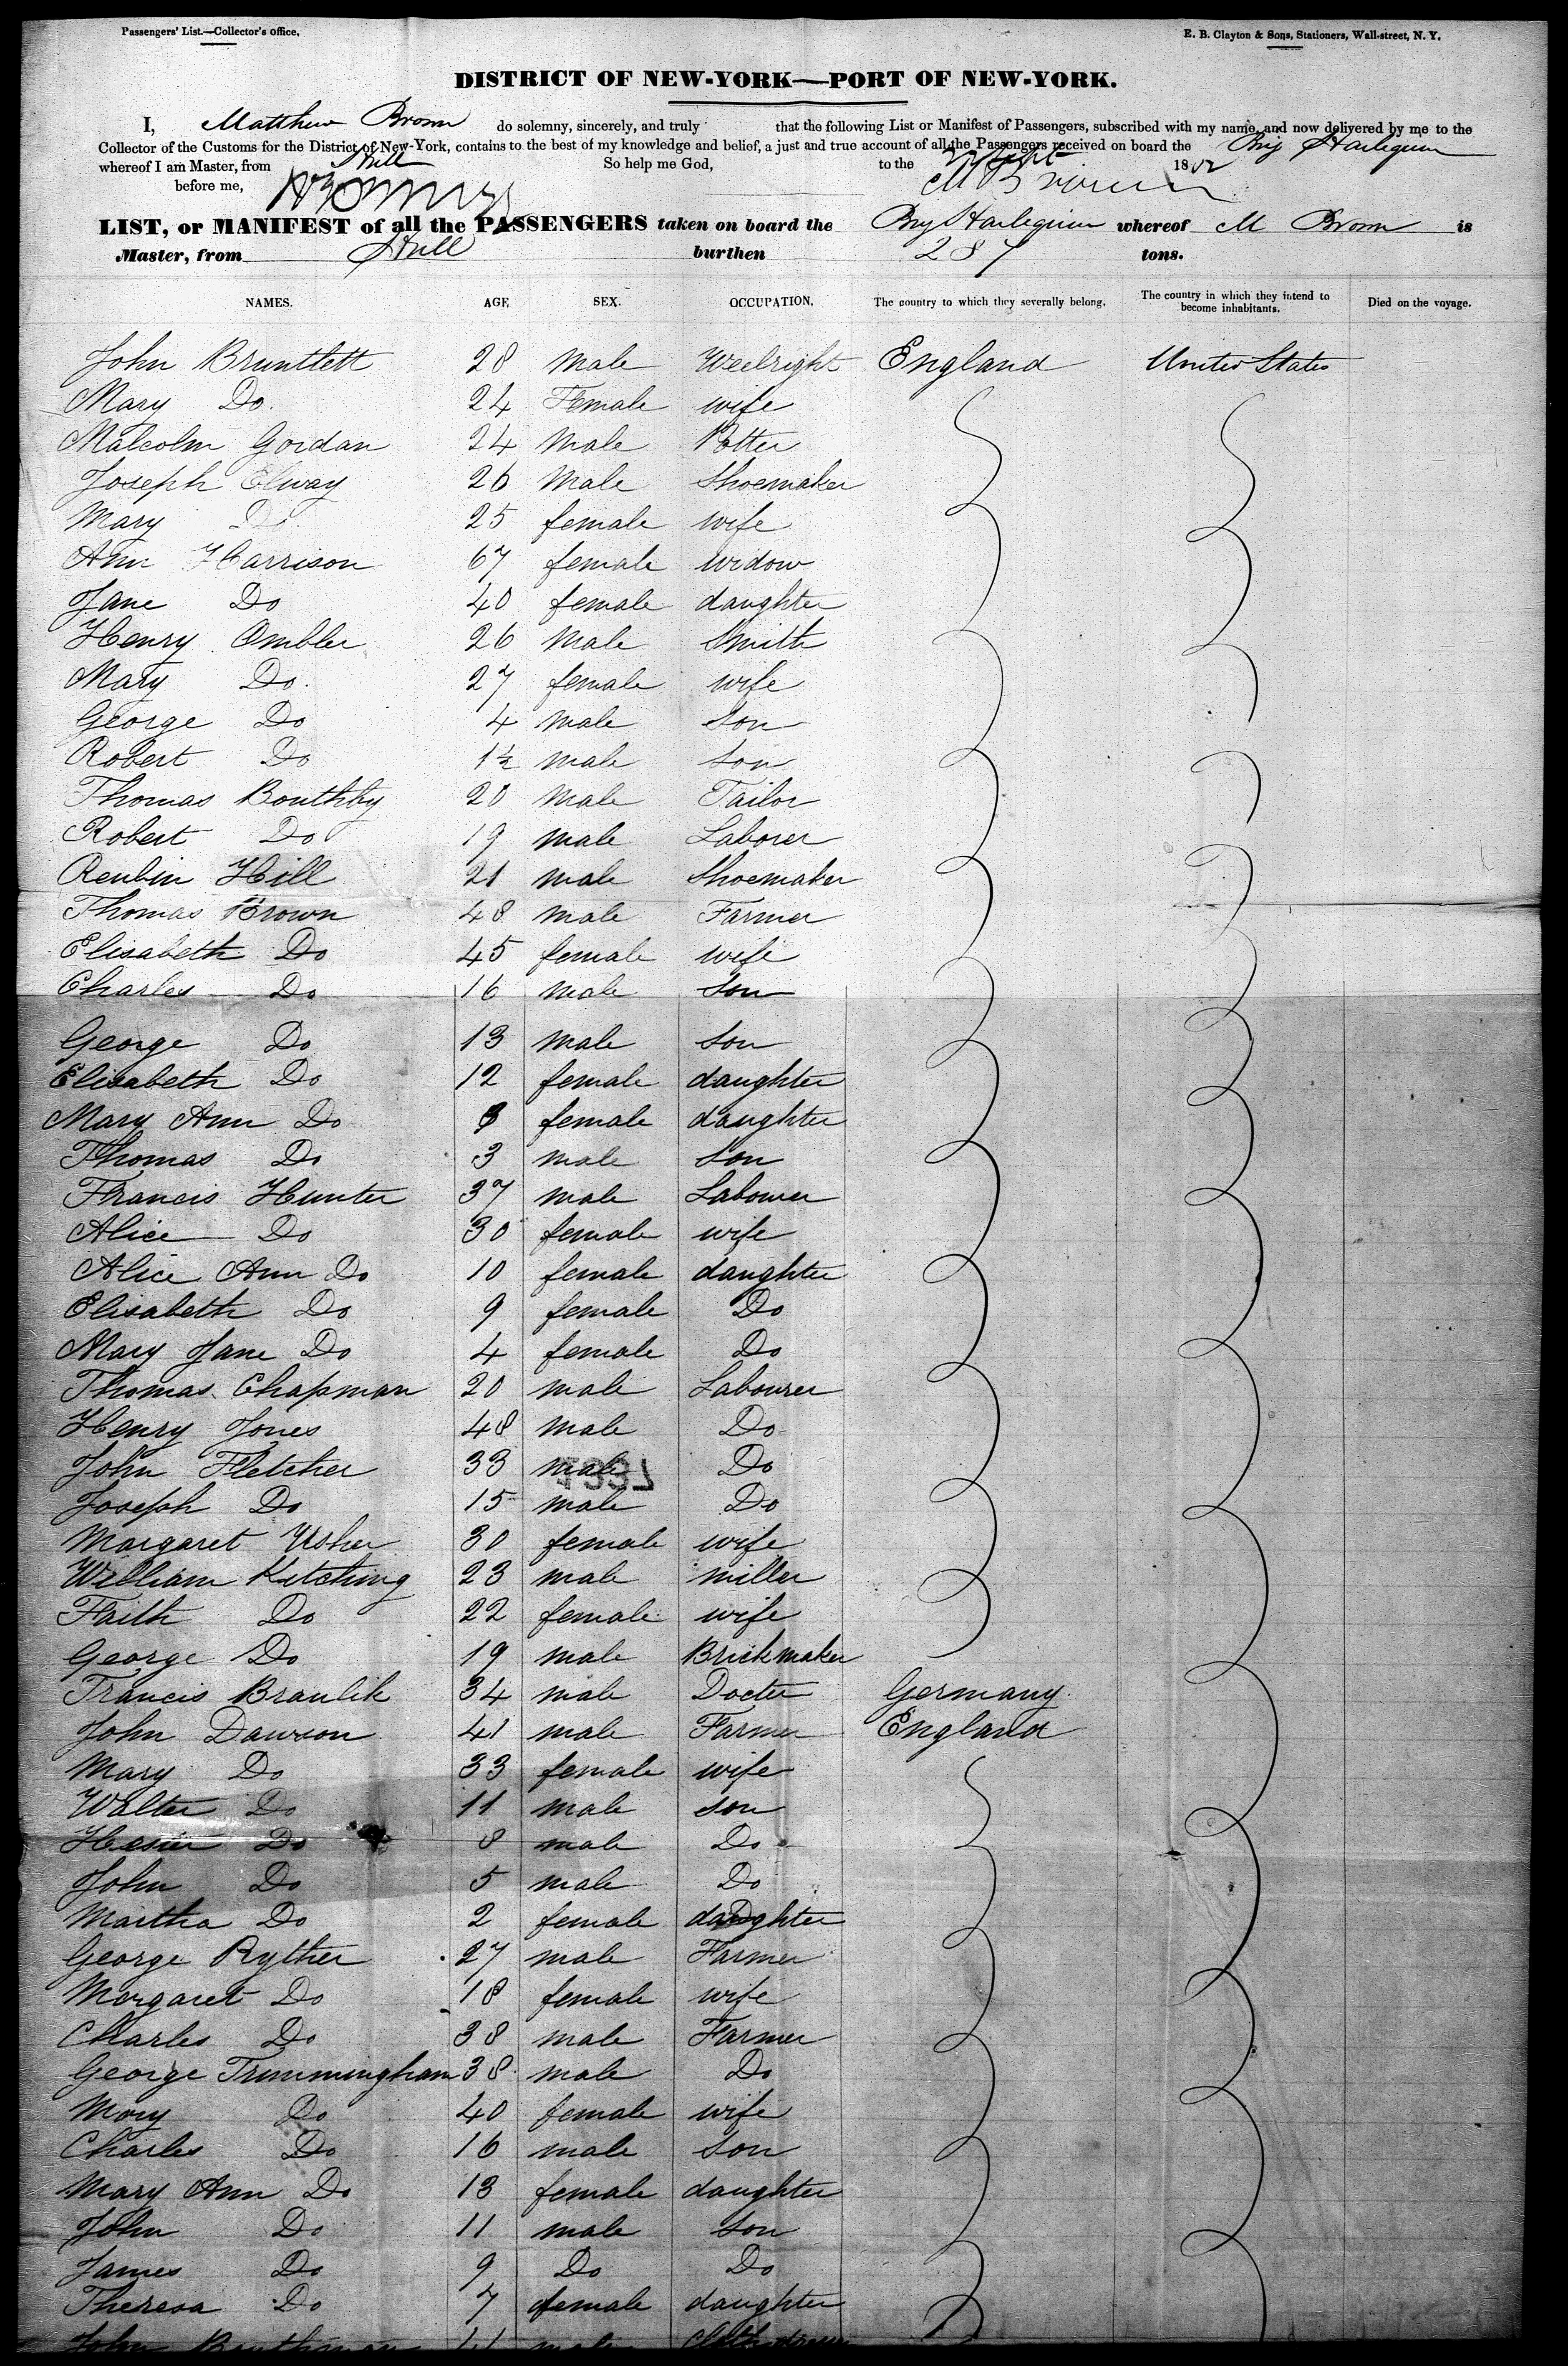 Passengers' List.—Collector's office.
E. B. Clayton & Sons, Stationers, Wall-street, N. Y.
DISTRICT OF NEW-YORK—PORT OF NEW-YORK.
I, Matthew Brown do solemny, sincerely, and truly that the following List or Manifest of Passengers, subscribed with my name, and now delivered by me to the
Collector of the Customs for the District of New-York, contains to the best of my knowledge and belief, a just and true account of all the Passengers received on board the Brig Harlequin
whereof I am Master, from Hull So help me God, to the 18
before me, M Brown
LIST, or MANIFEST of all the PASSENGERS taken on board the Brig Harlequin whereof M Brown is
Master, from Hull burthen 287 tons.
NAMES. AGE SEX. OCCUPATION, The country to which they severally belong, The country in which they intend to become inhabitants. Died on the voyage.
John Bruntlett 28 Male Weelright England United States
Mary Do. 24 Female wife
Malcolm Gordan 24 Male Potter
Joseph Elway 26 Male Shoemaker
Mary Do 25 female wife
Ann Harrison 67 female widow
Jane Do 40 female daughter
Henry Ombler 26 Male Smith
Mary Do. 27 female wife
George Do 4 male Son
Robert Do 1½ male Son
Thomas Bouthby 20 Male Tailor
Robert Do 19 male Laborer
Reubin Hill 21 male Shoemaker
Thomas Brown 48 male Farmer
Elisabeth Do 45 female wife
Charles Do 16 male Son
George Do 13 male Son
Elisabeth Do 12 female daughter
Mary Ann Do female daughter
Thomas Do 3 male Son
Francis Hunter 37 male Labourer
Alice Do 30 female wife
Alice Ann Do 10 female daughter
Elisabeth Do 9 female Do
Mary Jane Do 4 female Do
Thomas Chapman 20 male Labourer
Henry Jones 48 male Do
John Fletcher 33 male Do
Joseph Do 15 male Do
Margaret Usher 30 female wife
William Kitching 23 male miller
Faith Do 22 female wife
George Do 19 male Brickmaker
Francis Braulik 34 male Docter Germany
John Dawson 41 male Farmer England
Mary Do 33 female wife
Walter Do 11 male son
Do 8 male Do
John Do 5 male Do
Martha Do 2 female daughter
George Ryther 27 male Farmer
Margaret Do 18 female wife
Charles Do 38 male Farmer
George Trimmingham 38 male Do
Mary Do 40 female wife
Charles Do 16 male Son
Mary Ann Do 13 female daughter
John Do 11 male Son
James Do 9 Do Do
Theresa Do 7 female daughter
John